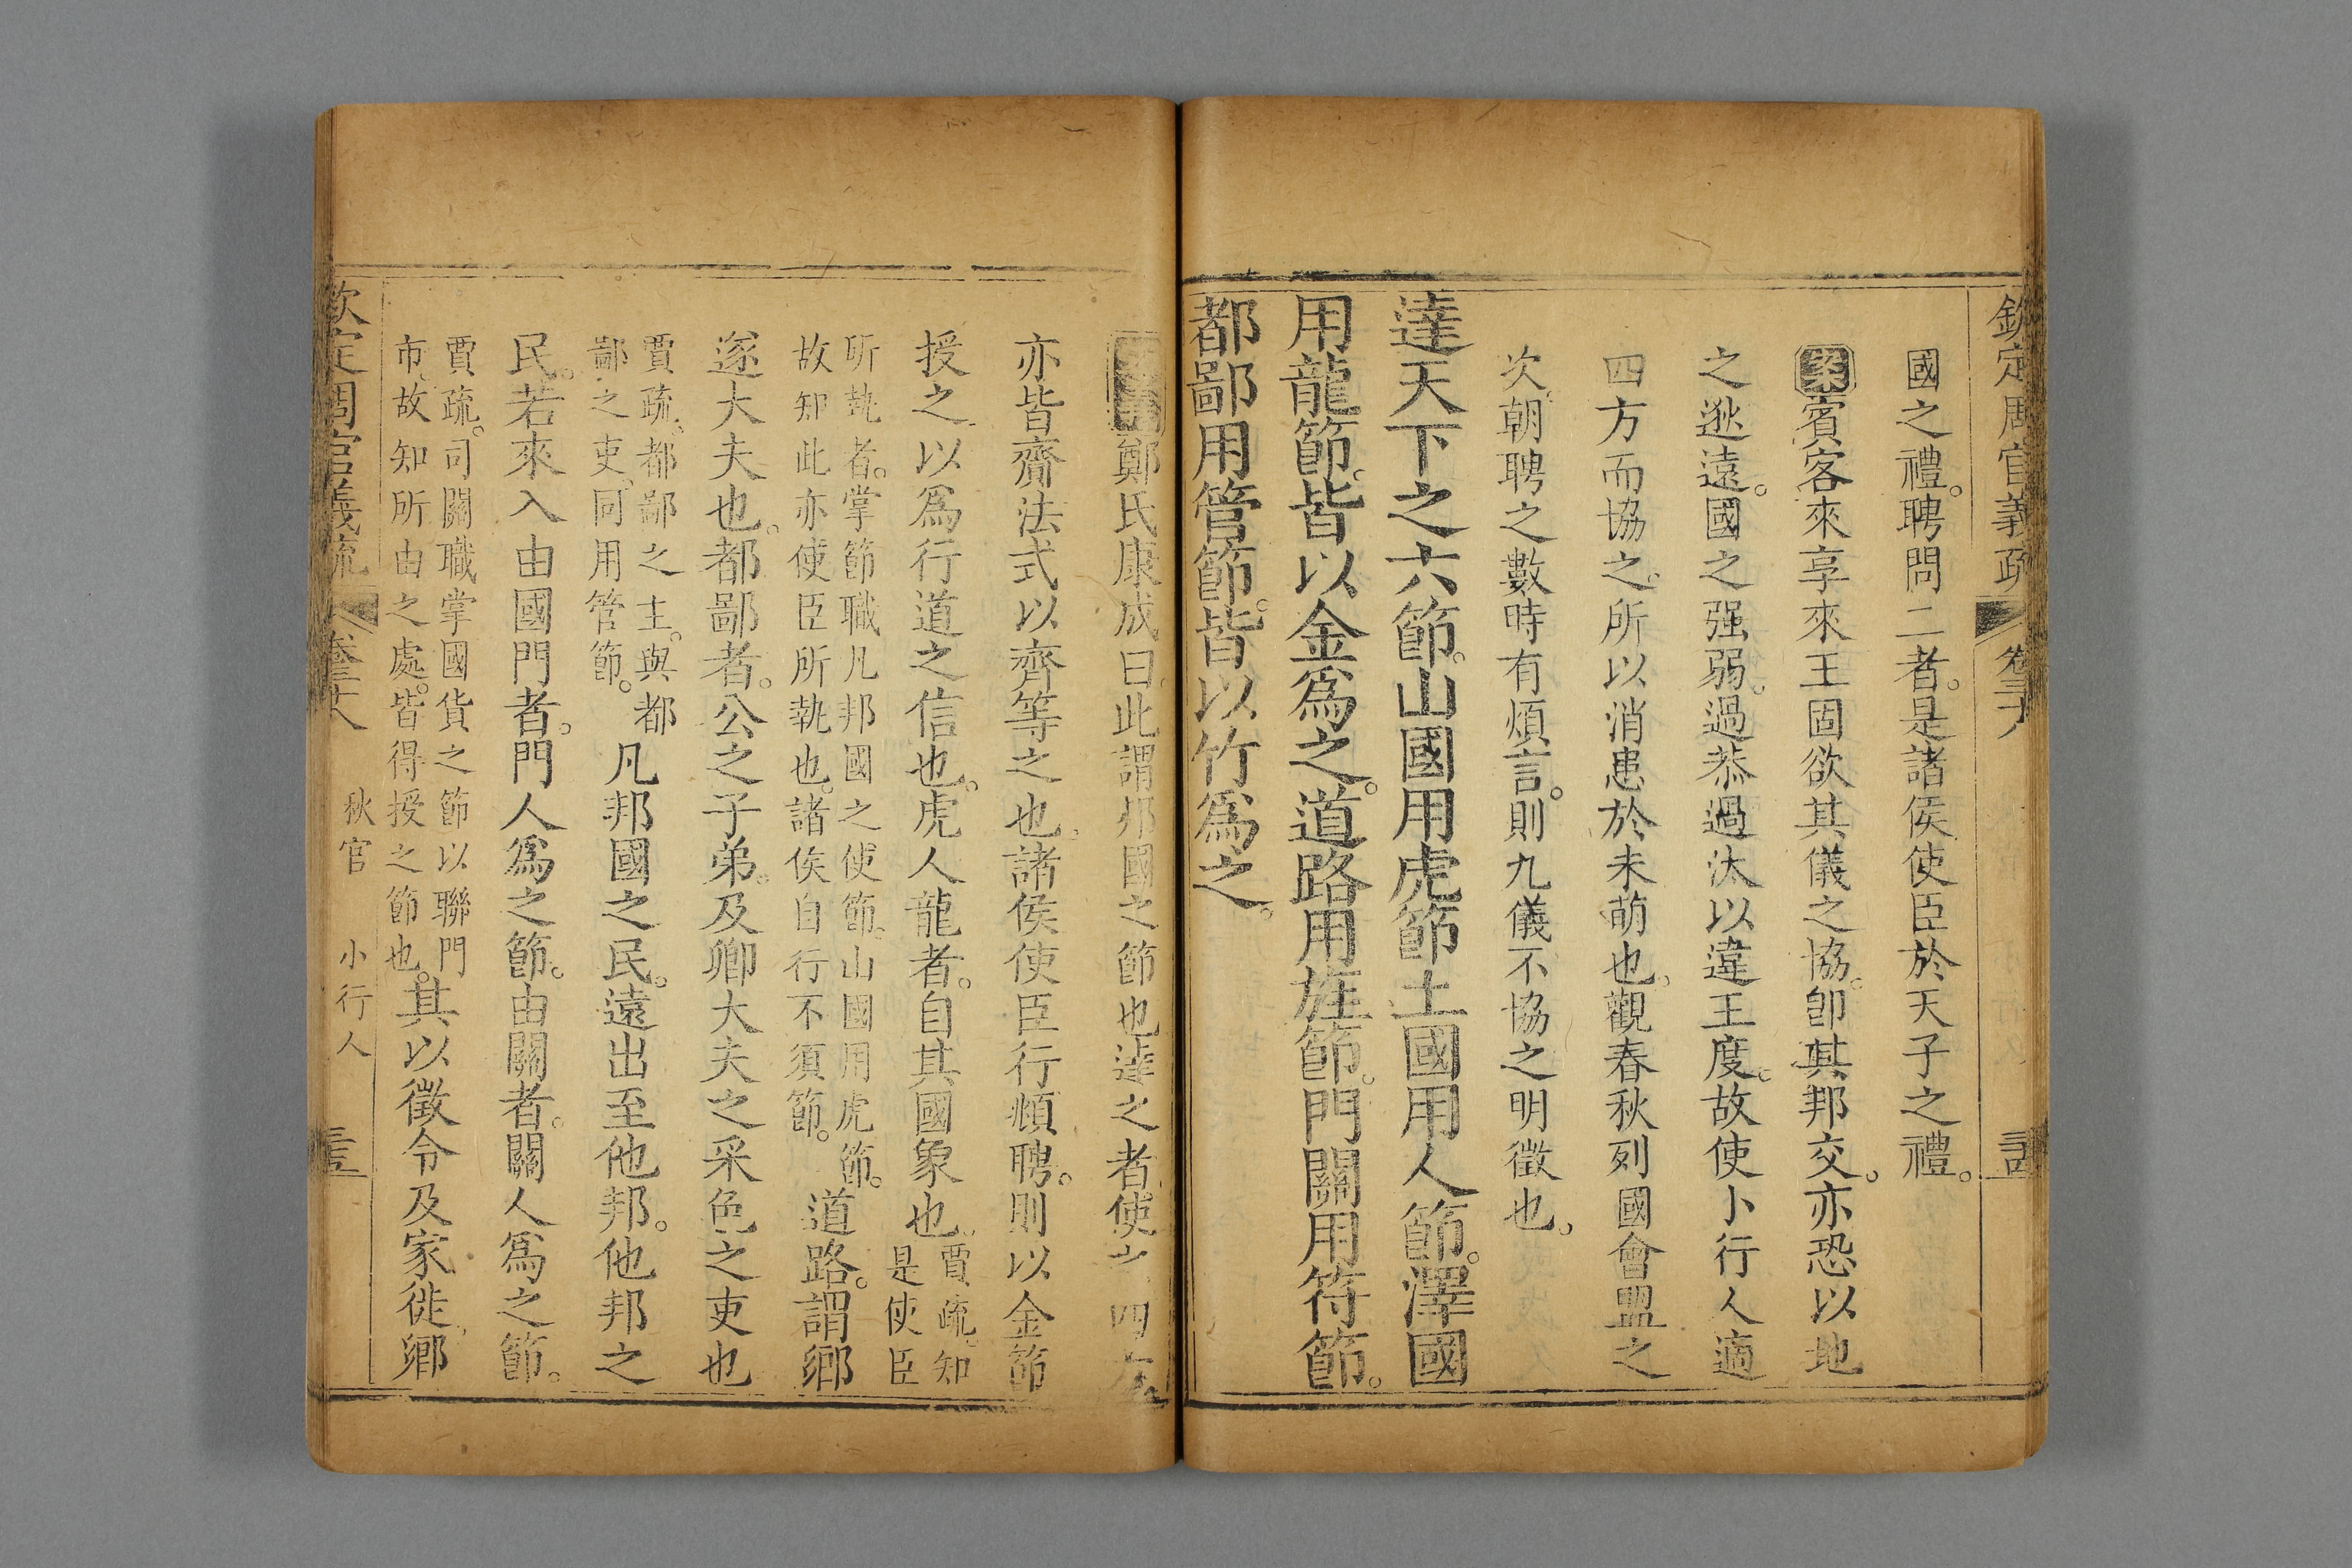 欽定周官義疏 卷三十八
國之禮。聘問二者。是諸侯使臣於天子之禮。
案賓客來享來王固欲其儀之協。卽其邦交。亦恐以地
之邇遠。國之强弱。過恭過汰以違王度。故使小行人適
四方而協之。所以消患於未萌也。觀春秋列國會盟之
次。朝聘之數時有煩言。則九儀不協之明徵也。
達天下之六節。山國用虎節土國用人節。澤國
用龍節。皆以金爲之。道路用旌節。門關用符節。
都鄙用管節。皆以竹爲之。
鄭氏康成曰此謂邦國之節也達之者使之四方
亦皆齎法式以齊等之也。諸侯使臣行覜聘。則以金節
授之以爲行道之信也。虎人龍者。自其國象也。賈疏。知
是使臣
所執者。掌節職凡邦國之使節。山國用虎節。
故知此亦使臣所執也。諸侯自行不須節。道路。謂鄉
遂大夫也。都鄙者。公之子弟。及卿大夫之采邑之吏也
賈疏。都鄙之主。與都
鄙之吏。同用管節。凡邦國之民。遠出至他邦。他邦之
民。若來入由國門者。門人爲之節。由關者。關人爲之節。
賈疏。司關職掌國貨之節以聯門
市。故知所由之處。皆得授之節也。其以徵令及家徙。鄉
欽定周官義疏 卷三十八 秋官 小行人